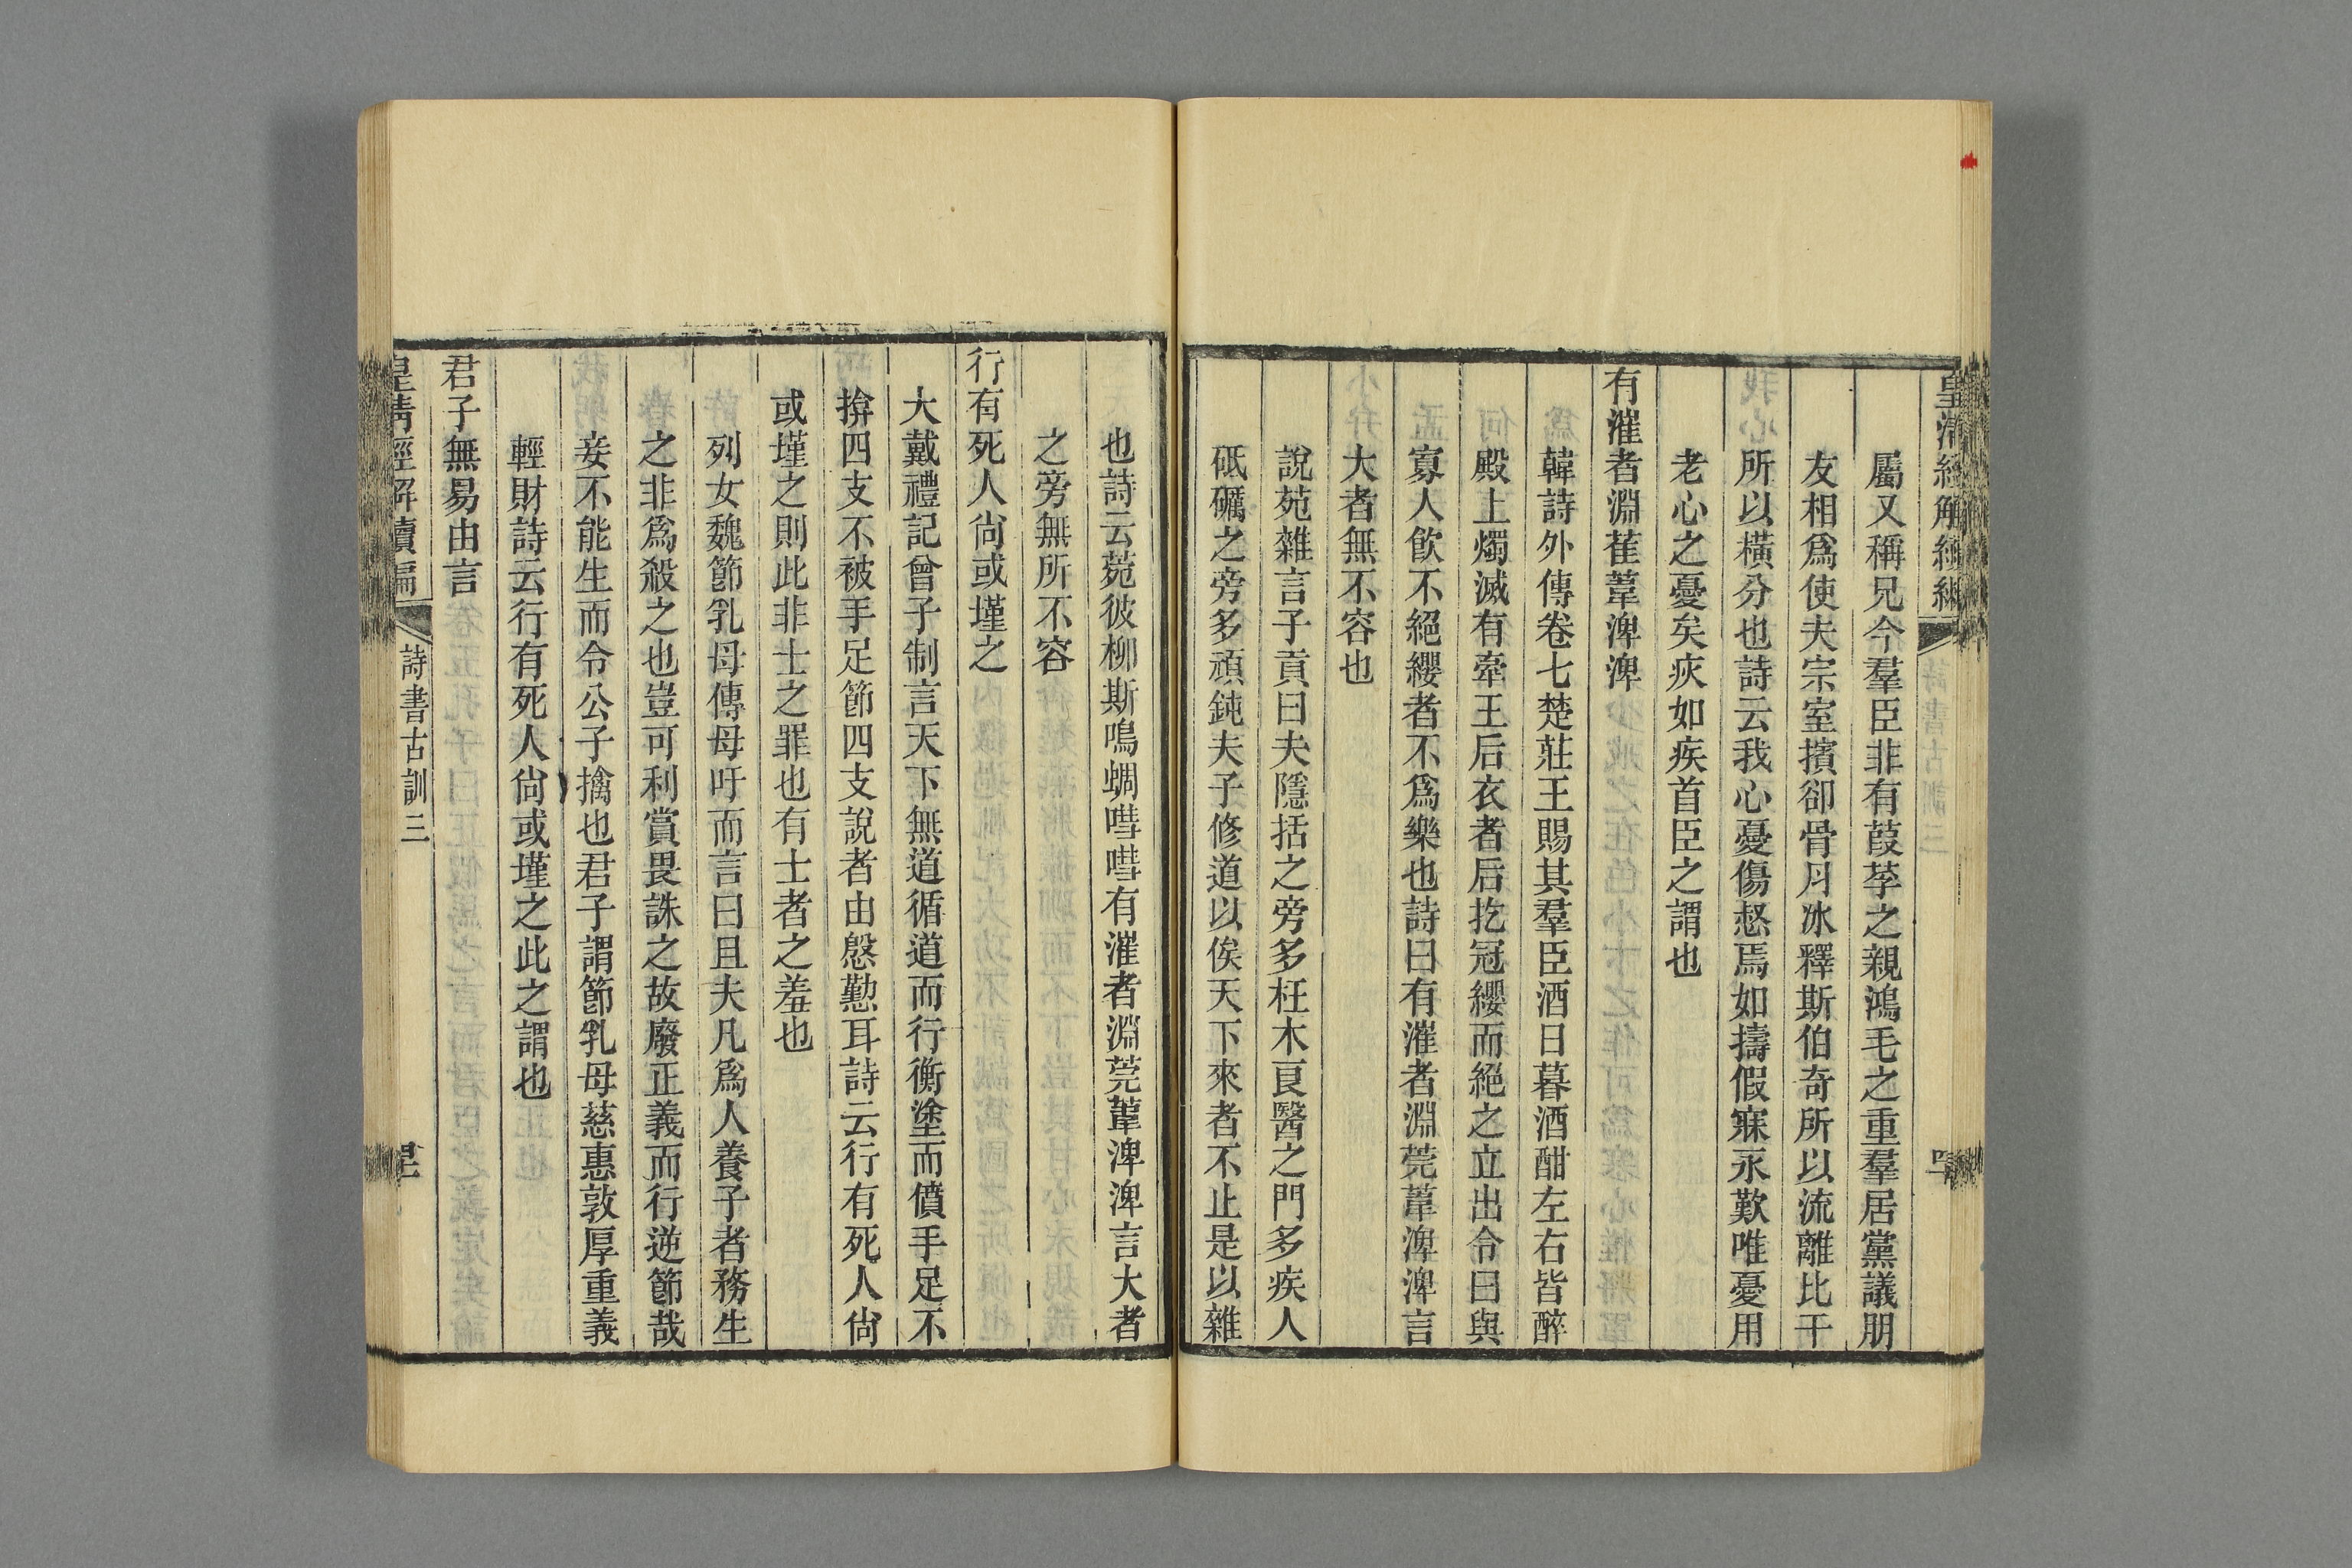 屬又稱兄今羣臣非有葭莩之親鴻毛之重羣居黨議朋
友相爲使夫宗室擯卻骨月冰釋斯伯奇所以流離比干
所以橫分也詩云我心憂傷惄焉如擣假寐永歎唯憂用
老心之憂矣疢如疾首臣之謂也
有漼者淵萑葦淠淠
韓詩外傳卷七楚莊王賜其羣臣酒日暮酒酣左右皆醉
殿上燭滅有牽王后衣者后扢冠纓而絕之立出令曰與
寡人飮不絕纓者不爲樂也詩曰有漼者淵莞葦淠淠言
大者無不容也
說苑雜言子貢曰夫隱括之旁多枉木良醫之門多疾人
砥礪之旁多頑鈍夫子修道以俟天下來者不止是以雜
也詩云菀彼柳斯鳴蜩嘒嘒有漼者淵莞葦淠淠言大者
之旁無所不容
行有死人尙或墐之
大戴禮記曾子制言天下無道循道而行衡塗而僨手足不
揜四支不被手足節四支說者由慇懃耳詩云行有死人尙
或墐之則此非士之罪也有士者之羞也
列女魏節乳母傳母吁而言曰且夫凡爲人養子者務生
之非爲殺之也豈可利賞畏誅之故廢正義而行逆節哉
妾不能生而令公子擒也君子謂節乳母慈惠敦厚重義
輕財詩云行有死人尙或墐之此之謂也
君子無易由言
皇淸經解續編
詩書古訓三